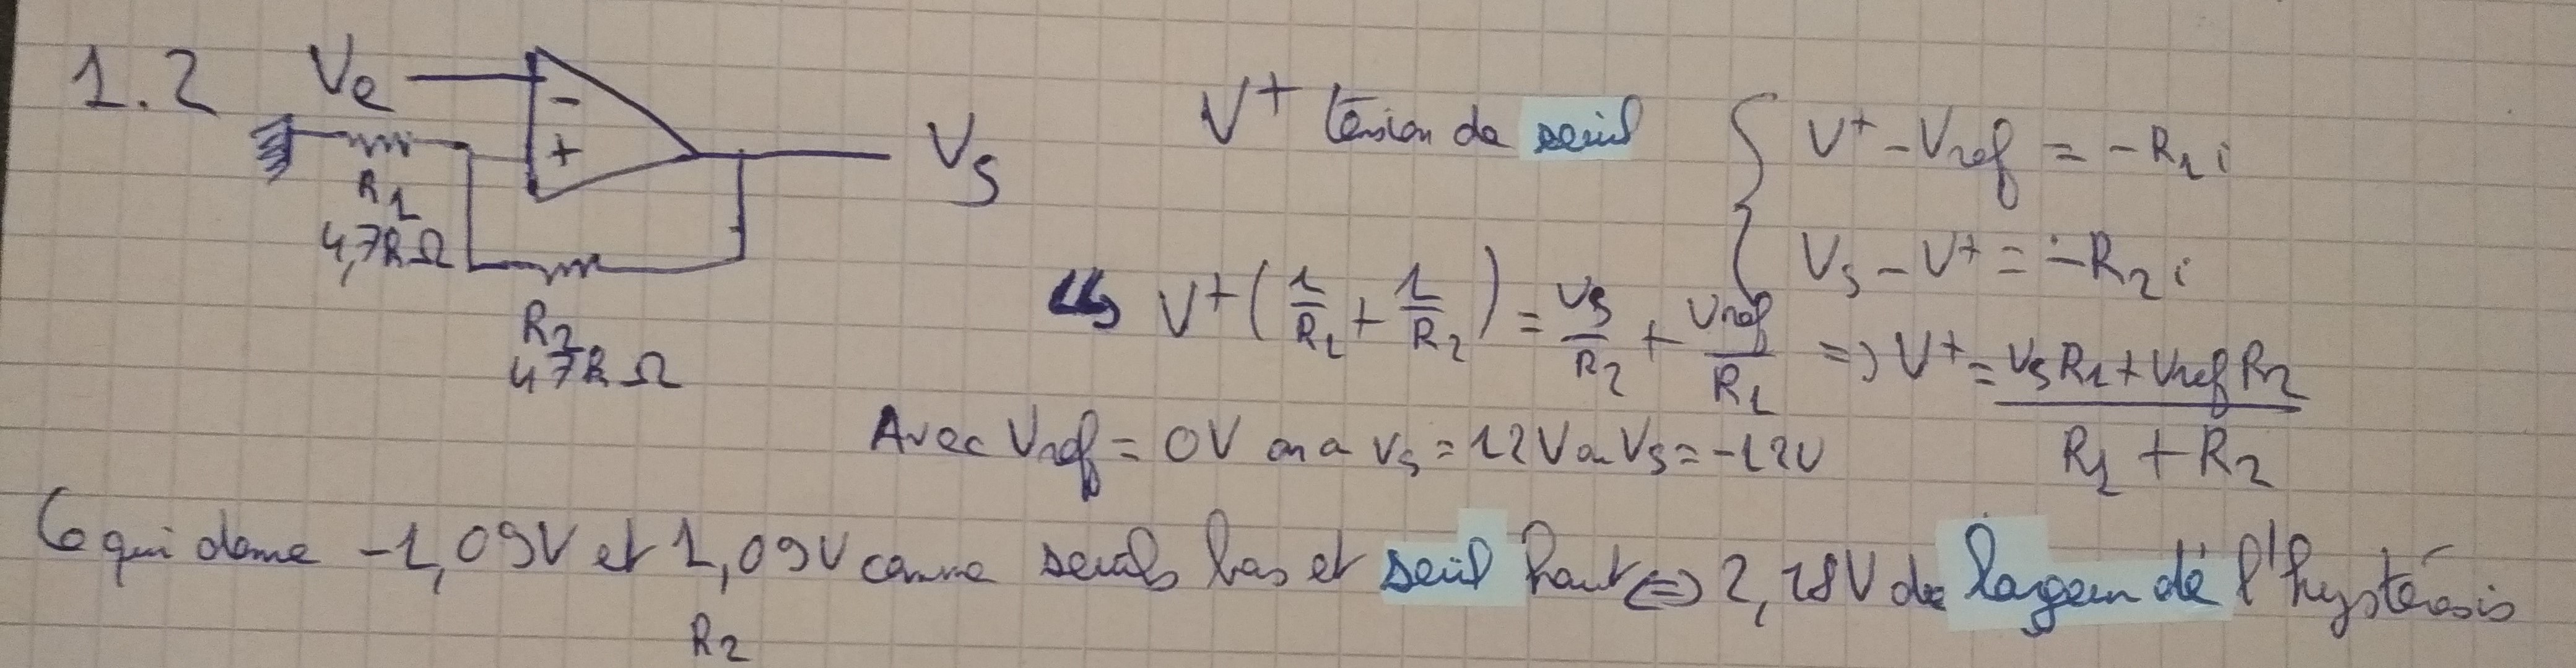 1.2 Ve - + Vs
R1
4,7kΩ
R2
47kΩ
V+ tension de seuil { V+ - Vref = -R1 i
Vs - V+ = -R2 i
↳ V+ (1/R1 + 1/R2) = Vs/R2 + Vref/R1 => V+ = (VsR1 + VrefR2)/(R1 + R2)
Avec Vref = 0V on a Vs = 12V ou Vs = -12V
Ce qui donne -1,09V et 1,09V comme seuils bas et seuil haut <=> 2,18V de largeur de l'hystérésis
R2